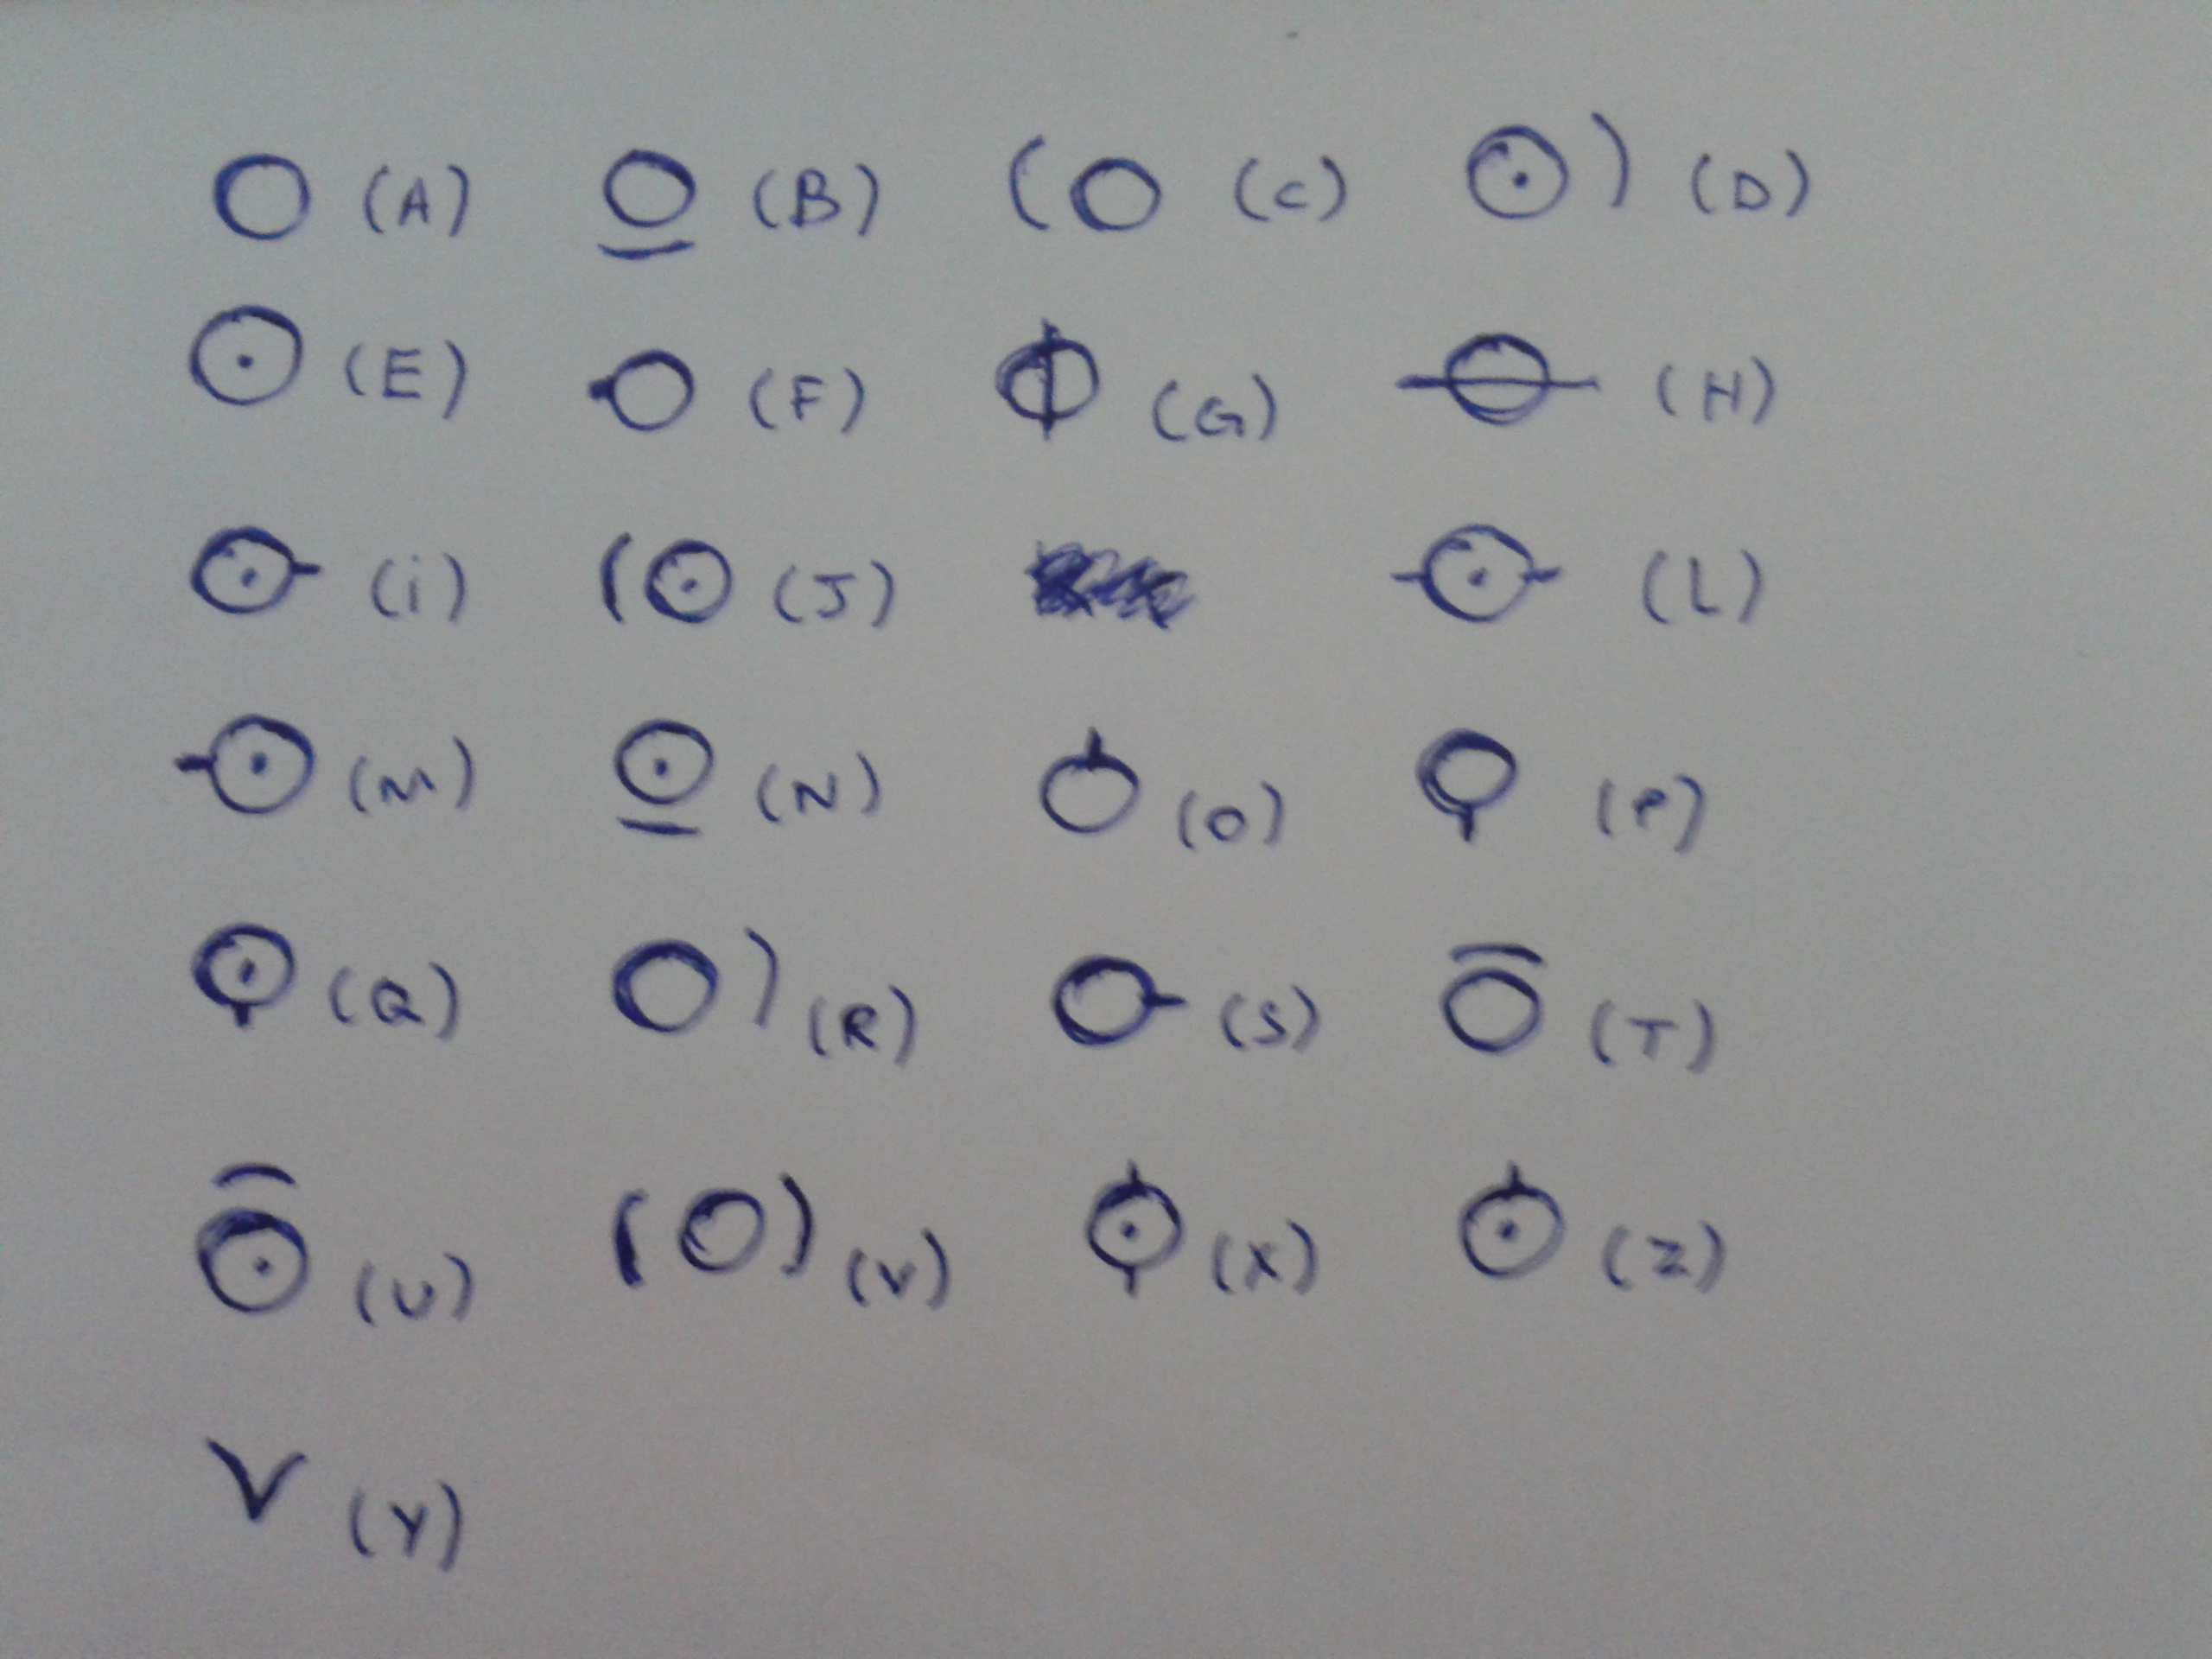 (A) (B) (C) (D)
(E) (F) (G) (H)
(i) (J) (L)
(M) (N) (O) (P)
(Q) (R) (S) (T)
(U) (V) (X) (Z)
(Y)